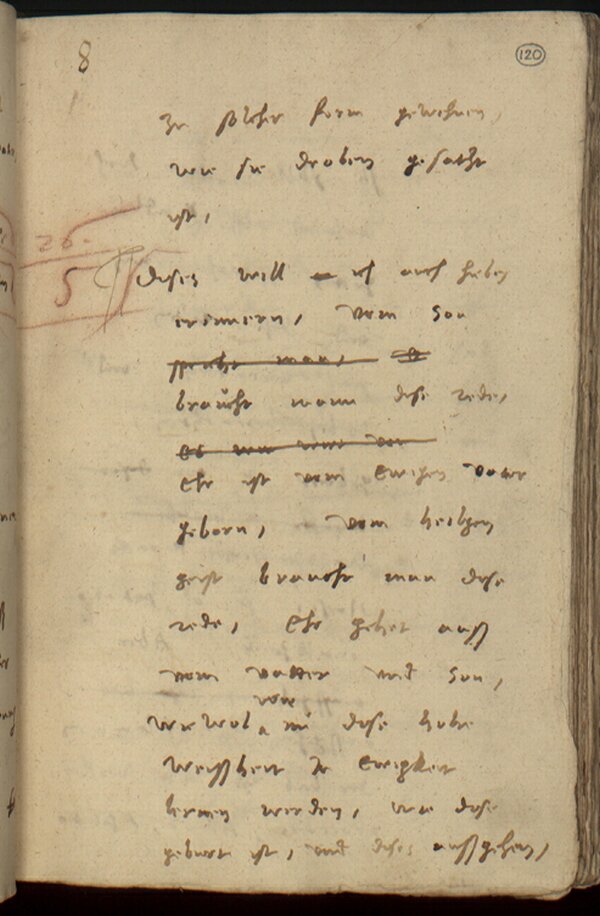 8
120
zu solcher form gewehnen,
wie sie droben gesatzt
ist,
26.
5
dises will ich auch hieben
erinnern, vom Son
spricht man,
braucht mann dise rede,
Ehr ist vom Ewigen vater
geborn, vom heiligen
geist braucht man dise
rede, Ehr gehet auss
vom vatter und Son,
wir
wiewol nu dise hohe
Weissheit in Ewigkeit
lernen werden, wie dise
geburt ist, und dises aussgehen,